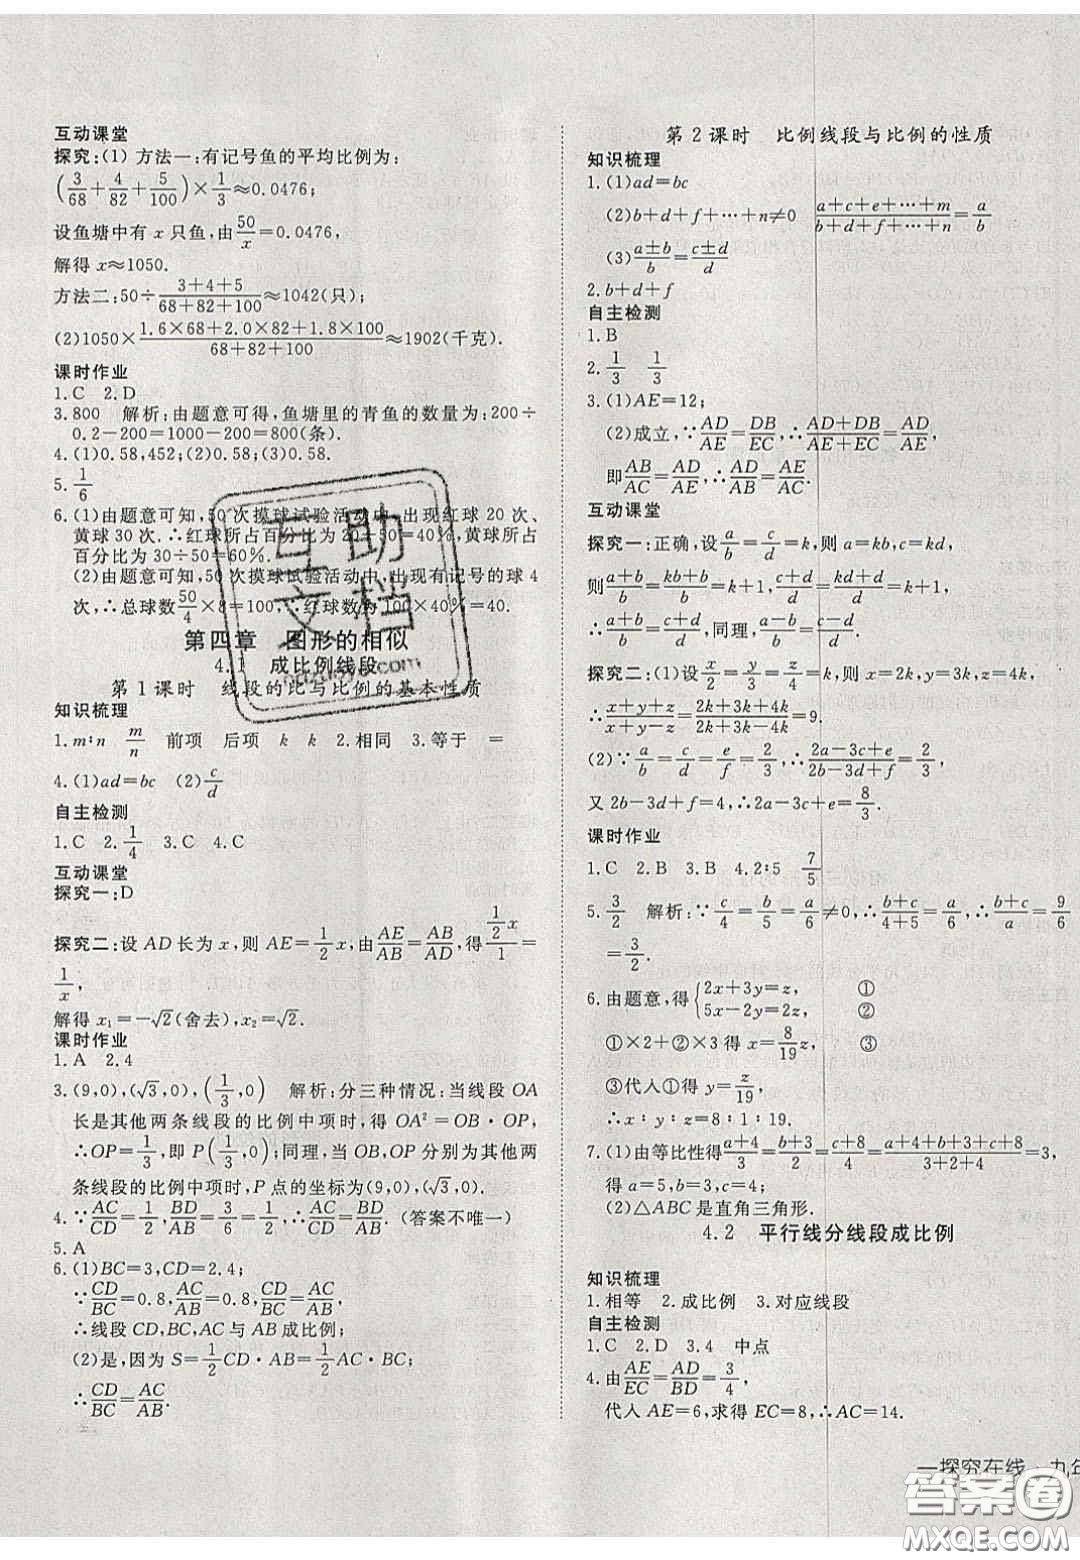 互动课堂
探究:(1) 方法一:有记号鱼的平均比例为:
(3/68+4/82+5/100)×1/3≈0.0476;
设鱼塘中有 x 只鱼,由50/x=0.0476,
解得 x≈1050.
方法二:50÷(3+4+5)/(68+82+100)≈1042(只);
(2)1050×(1.6×68+2.0×82+1.8×100)/(68+82+100)≈1902(千克).
课时作业
1.C 2.D
3.800 解析:由题意可得,鱼塘里的青鱼的数量为:200÷
0.2-200=1000-200=800(条).
4.(1)0.58,452;(2)0.58;(3)0.58.
5.1/6
6.(1)由题意可知,50 次摸球试验活动中,出现红球 20 次、
黄球 30 次.∴红球所占百分比为 20÷50=40%,黄球所占
百分比为 30÷50=60%.
(2)由题意可知,50 次摸球试验活动中,出现有记号的球 4
次,∴总球数50/4×8=100,∴红球数为100×40%=40.
第四章 图形的相似
4.1 成比例线段
第 1 课时 线段的比与比例的基本性质
知识梳理
1.m∶n m/n 前项 后项 k k 2.相同 3.等于 =
4.(1)ad=bc (2)c/d
自主检测
1.C 2.1/4 3.C 4.C
互动课堂
探究一:D
探究二:设 AD 长为 x,则 AE=1/2x,由AE/AB=AB/AD,得(1/2x)/1=
1/x,
解得 x₁=-√2(舍去),x₂=√2.
课时作业
1.A 2.4
3.(9,0),(√3,0),(1/3,0) 解析:分三种情况:当线段 OA
长是其他两条线段的比例中项时,得 OA²=OB·OP,
∴OP=1/3,即 P(1/3,0);同理,当 OB,OP 分别为其他两
条线段的比例中项时,P 点的坐标为(9,0),(√3,0).
4.∵AC/CD=1/2,BD/AB=3/6=1/2,∴AC/CD=BD/AB.(答案不唯一)
5.A
6.(1)BC=3,CD=2.4;
∵CD/BC=0.8,AC/AB=0.8,∴CD/BC=AC/AB,
∴线段 CD,BC,AC 与 AB 成比例;
(2)是,因为 S=1/2CD·AB=1/2AC·BC,
∴CD/BC=AC/AB.
第 2 课时 比例线段与比例的性质
知识梳理
1.(1)ad=bc
(2)b+d+f+…+n≠0 (a+c+e+…+m)/(b+d+f+…+n)=a/b
(3)(a±b)/b=(c±d)/d
2.b+d+f
自主检测
1.B
2.1/3 1/3
3.(1)AE=12;
(2)成立,∵AD/AE=DB/EC,∴(AD+DB)/(AE+EC)=AD/AE,
即AB/AC=AD/AE,∴AD/AB=AE/AC.
互动课堂
探究一:正确,设a/b=c/d=k,则 a=kb,c=kd,
则(a+b)/b=(kb+b)/b=k+1,(c+d)/d=(kd+d)/d=k+1,
∴(a+b)/b=(c+d)/d,同理,(a-b)/b=(c-d)/d.
探究二:(1)设x/2=y/3=z/4=k,则 x=2k,y=3k,z=4k,
∴(x+y+z)/(x+y-z)=(2k+3k+4k)/(2k+3k-4k)=9.
(2)∵a/b=c/d=e/f=2/3,∴(2a-3c+e)/(2b-3d+f)=2/3,
又 2b-3d+f=4,∴2a-3c+e=8/3.
课时作业
1.C 2.B 3.B 4.2∶5 7/5
5.3/2 解析:∵c/4=b/5=a/6≠0,∴(b+c)/(4+5)=a/6,∴(b+c)/a=9/6
=3/2.
6.由题意,得{2x+3y=z, ①
5x-2y=2z, ②
①×2+②×3 得 x=8/19z, ③
③代人①得 y=z/19,
∴x∶y∶z=8∶1∶19.
7.(1)由等比性得(a+4)/3=(b+3)/2=(c+8)/4=(a+4+b+3+c+8)/(3+2+4)=3,
得 a=5,b=3,c=4;
(2)△ABC 是直角三角形.
4.2 平行线分线段成比例
知识梳理
1.相等 2.成比例 3.对应线段
自主检测
1.C 2.D 3.4 中点
4.由AE/EC=AD/BD=3/4,
代人 AE=6,求得 EC=8,∴AC=14.
一探究在线·九年
互助
文档
答案圈
MXQE.COM